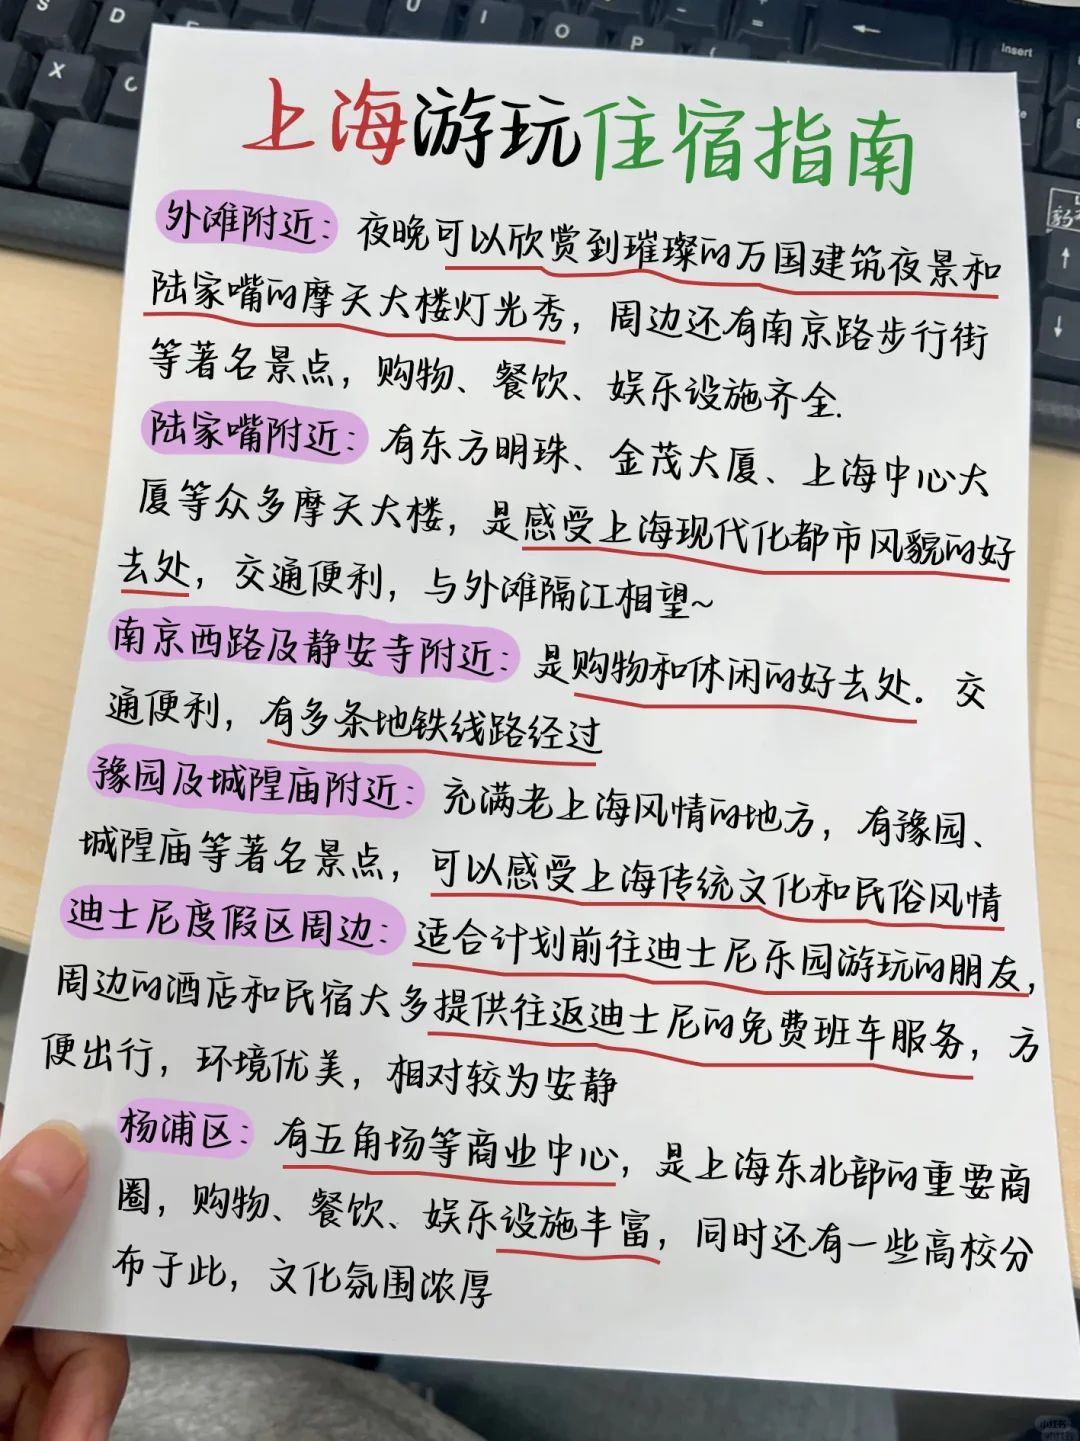 S D U I O P Insert
X C
上海游玩住宿指南
外滩附近：夜晚可以欣赏到璀璨的万国建筑夜景和
陆家嘴的摩天大楼灯光秀，周边还有南京路步行街
等著名景点，购物、餐饮、娱乐设施齐全.
陆家嘴附近：有东方明珠、金茂大厦、上海中心大
厦等众多摩天大楼，是感受上海现代化都市风貌的好
去处，交通便利，与外滩隔江相望~
南京西路及静安寺附近：是购物和休闲的好去处。交
通便利，有多条地铁线路经过
豫园及城隍庙附近：充满老上海风情的地方，有豫园、
城隍庙等著名景点，可以感受上海传统文化和民俗风情
迪士尼度假区周边：适合计划前往迪士尼乐园游玩的朋友，
周边的酒店和民宿大多提供往返迪士尼的免费班车服务，方
便出行，环境优美，相对较为安静
杨浦区：有五角场等商业中心，是上海东北部的重要商
圈，购物、餐饮、娱乐设施丰富，同时还有一些高校分
布于此，文化氛围浓厚
小红书